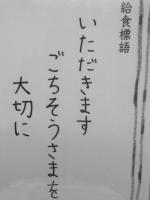 給食標語
いただきます
ごちそうさまを
大切に